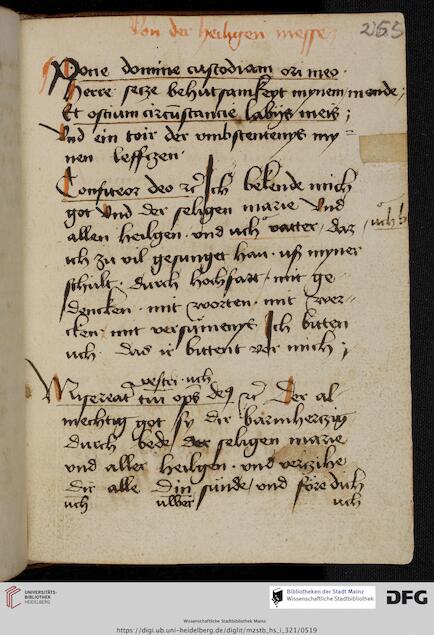 Von der heiligen messe
255
Pone domine custodiam ori meo ·
herre setze behutsamkeyt mynem munde ;
Et ostium circumstancie labijs meis ;
Vnd ein toir der vmbstentenys my
nen leffzen ·
Confiteor deo ꝛc Ich bekende mich
got vnd der seligen marie vnd
allen heilgen · vnd uch vatter / daz / uch b
ich zu vil gesunget han · uß myner
schült · durch hochfart / mit ge
dencken · mit worten · mit wer
cken · mit versümenys Ich bitten
uch · das ir bittent vor mich ;
vestri · uch
Misereatur tui omps deus ꝛc Der al
mechtig got sy dir barmhertzig
durch bede der seligen marie
vnd aller heilgen · vnd vertzihe
dir alle din sünde / vnd före dich
uch uwer uch
UNIVERSITÄTS-
BIBLIOTHEK
HEIDELBERG
Bibliotheken der Stadt Mainz
Wissenschaftliche Stadtbibliothek
DFG
Wissenschaftliche Stadtbibliothek Mainz
https://digi.ub.uni-heidelberg.de/diglit/mzstb_hs_i_321/0519